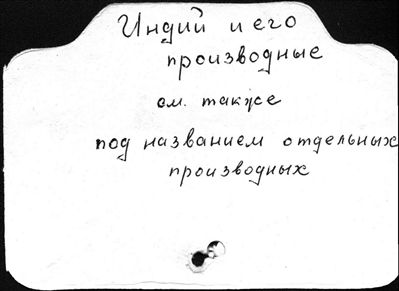 Индий и его
производные
см. также
под названием отдельных
производных